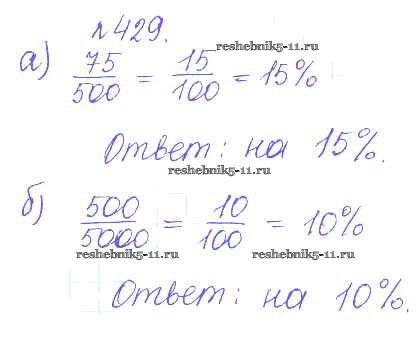 №429.
reshebnik5-11.ru
а) 75/500 = 15/100 = 15%
Ответ: на 15%.
reshebnik5-11.ru
б) 500/5000 = 10/100 = 10%
reshebnik5-11.ru reshebnik5-11.ru
Ответ: на 10%.